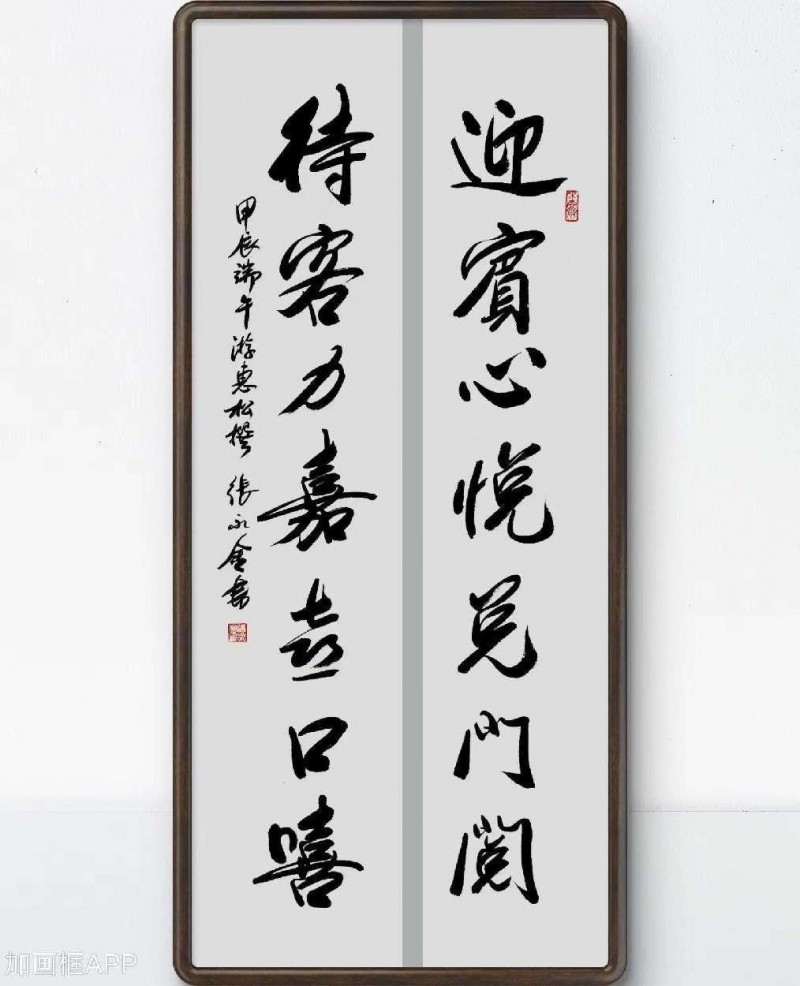 迎賓心悅兌門閱
待客力嘉喜口嘻
甲辰端午游惠松撰 張永金書
加画框APP